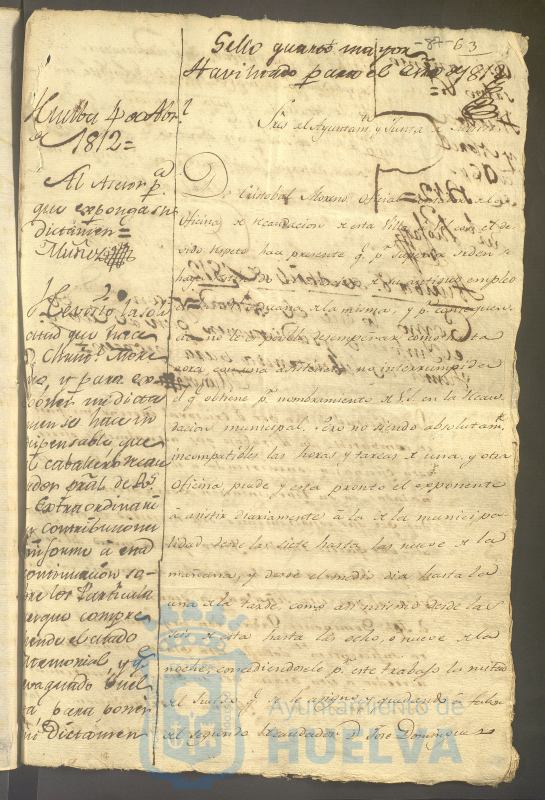 -87- 63
Sello quarto mayor
Havilitado para el Año de 1812
Huelba 4 de Abr.l
de 1812=
Al Asesor p.a
que exponga su
Dictamen=
Muñoz
He visto la soli
citud que hace
D. Christ.l More
no, y para ex
poner mi dicta
men se hace in
dispensable, que
el caballero Recau
dador gral de las
Extraordinari
contribuciones
informe á esta
continuacion so-
bre los Particula
que compre
ende el citado
memorial, y
evaquado buel
va para poner
mi Dictamen
Sres del Ayuntam.to y Junta de
Dn Cristobal Moreno, oficial de la
oficina de recaudacion de esta Villa con el de
vido respeto hace presente q.e p.r Superior orden
empleo
de la misma, y p.r consequen
cia no le es posible desempeñar como hasta
aora con una asistencia no interrumpida
el q.e obtiene p.r nombramiento de V.S. en la Recau
dacion municipal. Pero no siendo absolutam.te
incompatibles las horas y tareas de una, y otra
oficina puede y esta pronto el exponente
á asistir diariamente á la de la municipa
lidad desde las siete hasta las nueve de la
mañana, y desde el medio dia hasta la
una de la tarde, como asi mismo desde las
seis de esta hasta las ocho, o nueve de la
noche, concediendosele p.r este trabajo la mitad
del sueldo q.e se le asigno y quedando á
el segundo Recaudador D. Jose Dominguez
Ayuntamiento de
HUELVA